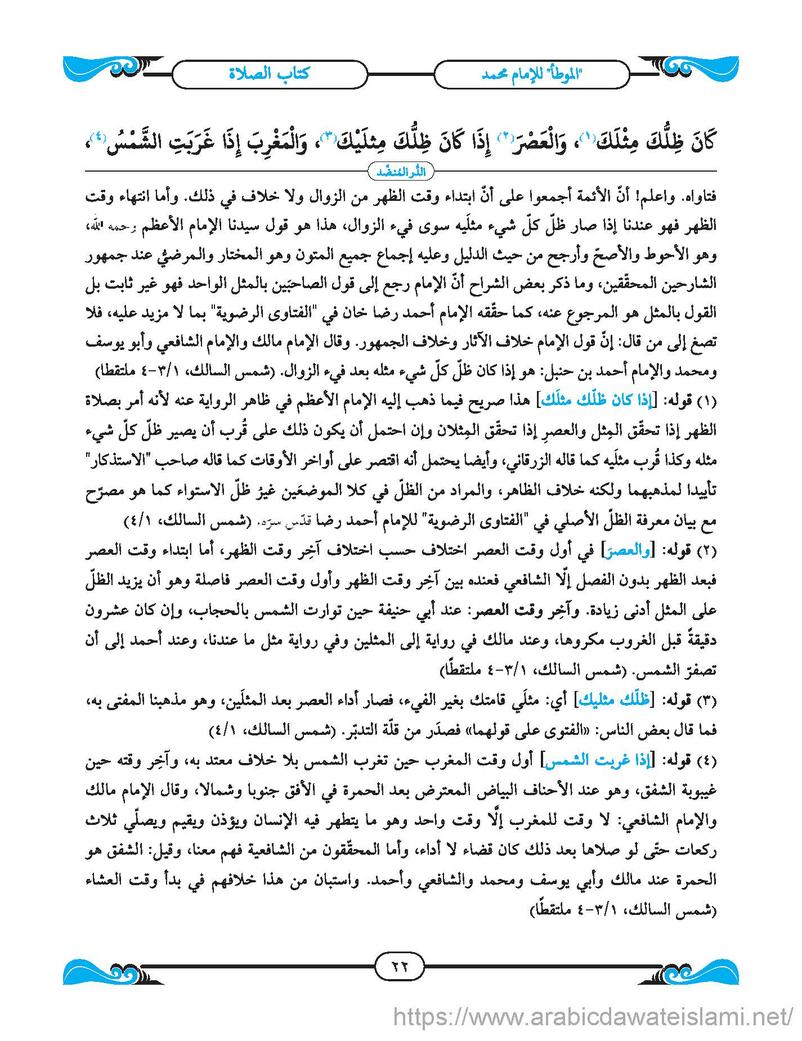 "الموطأ" للإمام محمد
كتاب الصلاة
كَانَ ظِلُّكَ مِثْلَكَ(١)، وَالْعَصْرَ(٢) إِذَا كَانَ ظِلُّكَ مِثلَيْكَ(٣)، وَالْمَغْرِبَ إِذَا غَرَبَتِ الشَّمْسُ(٤)،
الدُّر المُنضَّد
فتاواه. واعلم! أنّ الأئمة أجمعوا على أنّ ابتداء وقت الظهر من الزوال ولا خلاف في ذلك. وأما انتهاء وقت
الظهر فهو عندنا إذا صار ظلّ كلّ شيء مثلَيه سوى فيء الزوال، هذا هو قول سيدنا الإمام الأعظم رحمه الله،
وهو الأحوط والأصحّ وأرجح من حيث الدليل وعليه إجماع جميع المتون وهو المختار والمرضيُّ عند جمهور
الشارحين المحقّقين، وما ذكر بعض الشراح أنّ الإمام رجع إلى قول الصاحبَين بالمثل الواحد فهو غير ثابت بل
القول بالمثل هو المرجوع عنه، كما حقّقه الإمام أحمد رضا خان في "الفتاوى الرضوية" بما لا مزيد عليه، فلا
تصغ إلى من قال: إنّ قول الإمام خلاف الآثار وخلاف الجمهور. وقال الإمام مالك والإمام الشافعي وأبو يوسف
ومحمد والإمام أحمد بن حنبل: هو إذا كان ظلّ كلّ شيء مثله بعد فيء الزوال. (شمس السالك، ٣/١-٤ ملتقطا)
(١) قوله: [إذا كان ظلّك مثلَك] هذا صريح فيما ذهب إليه الإمام الأعظم في ظاهر الرواية عنه لأنه أمر بصلاة
الظهر إذا تحقّق المِثل والعصرِ إذا تحقّق المِثلان وإن احتمل أن يكون ذلك على قُرب أن يصير ظلّ كلّ شيء
مثله وكذا قُرب مثلَيه كما قاله الزرقاني، وأيضا يحتمل أنه اقتصر على أواخر الأوقات كما قاله صاحب "الاستذكار"
تأييدا لمذهبهما ولكنه خلاف الظاهر، والمراد من الظلّ في كلا الموضعَين غيرُ ظلّ الاستواء كما هو مصرّح
مع بيان معرفة الظلّ الأصلي في "الفتاوى الرضوية" للإمام أحمد رضا قدّس سرّه. (شمس السالك، ٤/١)
(٢) قوله: [والعصرَ] في أول وقت العصر اختلاف حسب اختلاف آخِر وقت الظهر، أما ابتداء وقت العصر
فبعد الظهر بدون الفصل إلّا الشافعي فعنده بين آخِر وقت الظهر وأول وقت العصر فاصلة وهو أن يزيد الظلّ
على المثل أدنى زيادة. وآخِر وقت العصر: عند أبي حنيفة حين توارت الشمس بالحجاب، وإن كان عشرون
دقيقةً قبل الغروب مكروها، وعند مالك في رواية إلى المثلين وفي رواية مثل ما عندنا، وعند أحمد إلى أن
تصفرّ الشمس. (شمس السالك، ٣/١-٤ ملتقطًا)
(٣) قوله: [ظلّك مثليك] أي: مثلَي قامتك بغير الفيء، فصار أداء العصر بعد المثلَين، وهو مذهبنا المفتى به،
فما قال بعض الناس: «الفتوى على قولهما» فصدَر من قلّة التدبّر. (شمس السالك، ٤/١)
(٤) قوله: [إذا غربت الشمس] أول وقت المغرب حين تغرب الشمس بلا خلاف معتد به، وآخِر وقته حين
غيبوبة الشفق، وهو عند الأحناف البياض المعترض بعد الحمرة في الأفق جنوبا وشمالا، وقال الإمام مالك
والإمام الشافعي: لا وقت للمغرب إلَّا وقت واحد وهو ما يتطهر فيه الإنسان ويؤذن ويقيم ويصلّي ثلاث
ركعات حتّى لو صلاها بعد ذلك كان قضاء لا أداء، وأما المحقّقون من الشافعية فهم معنا، وقيل: الشفق هو
الحمرة عند مالك وأبي يوسف ومحمد والشافعي وأحمد. واستبان من هذا خلافهم في بدأ وقت العشاء
(شمس السالك، ٣/١-٤ ملتقطًا)
٢٢
https://www.arabicdawateislami.net/